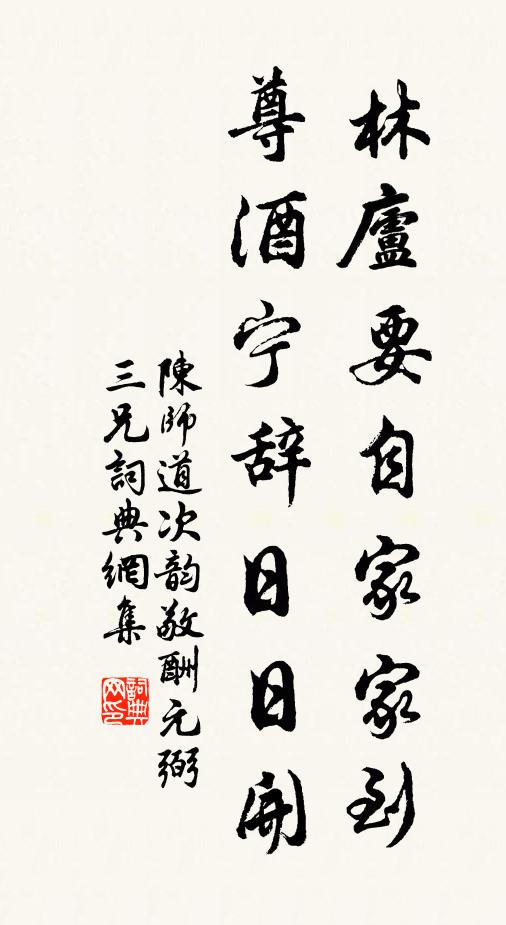 林廬要自家家到
尊酒宁辞日日開
陳師道次韵敬酬元弼
三兄詞典網集
詞典网印